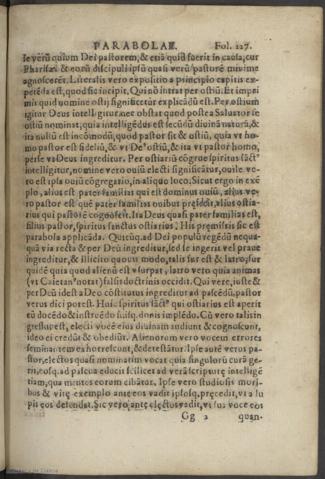 PARABOLAE. Fol. 227.
se verū quium Dei pastorem, & etiā quis fuerit in caula, cur
Pharisæi & eorū discipuli ipsū quasi verū pastorē minime
agnoscerēt. Literalis vero expositio a principio capitis ex-
petēda est, quod sic incipit. Qui nō intrat per ostiū. Et impri
mis quid nomine ostij significetur explicādū est. Per ostium
igitur Deus intelligitur. nec obstat quod postea Saluator se
ostiū nominat, quia intelligēdus est secūdū diuinā naturā, &
ita nullū est incōmodū, quod pastor sit & ostiū, quia vt ho-
mo pastor est fidelis, & vt De⁹ ostiū, & ita vt pastor homo,
per se vt Deus ingreditur. Per ostiariū cōgrue spiritus sāct⁹
intelligitur, nomine vero ouiū electi significātur, ouile ve-
ro est ipsa ouiū cōgregatio, in aliquo loco. Sicut ergo in exē
plo, alius est pater familias qui est dominus ouiū, alius ve-
ro pastor est quē pater familias ouibus pręfecit, alius ostia-
rius qui pastorē cognoscit. Ita Deus quasi pater familias est,
filius pastor, spiritus sanctus ostiarius. His præmissis sic est
parabola applicāda. Quicūq. ad Dei populū regēdū nequa-
quā via recta & per Deū ingreditur, sed se ingerit vel praue
ingreditur, & illicito quouis modo, talis fur est & latro, fur
quidē quia quod alienū est vsurpat, latro vero quia animas
(vt Caietan⁹ notat) falsis doctrinis occidit. Qui vero, iuste &
per Deū id est a Deo cōstitutus ingreditur ad pascēdū, pastor
verus dici potest. Huic spiritus sāct⁹ qui ostiarius est aperit
tū docēdo & instruēdo suisq. donis implēdo. Cū vero talis in
gressus est, electi voce eius diuinam audiunt & cognoscunt,
ideo ei credūt & obediūt. Alienorem vero vocem errores
seminantem exhorrescunt, & detestātur. Ipse autē verus pa-
stor, electos quasi nominatim vocat quia singulorū curā ge-
rit, eosq. ad pascua educit scilicet ad verā scripturę intelligē
tiam, qua mentes eorum cibātur. Ipse vero studiosis mori-
bus & vitę exemplo ante eos vadit ipsosq. pręcedit, vt a lu
pis eos defendat. Sic vero antę electos vadit, vt sua voce eos
Gg 2 quan-